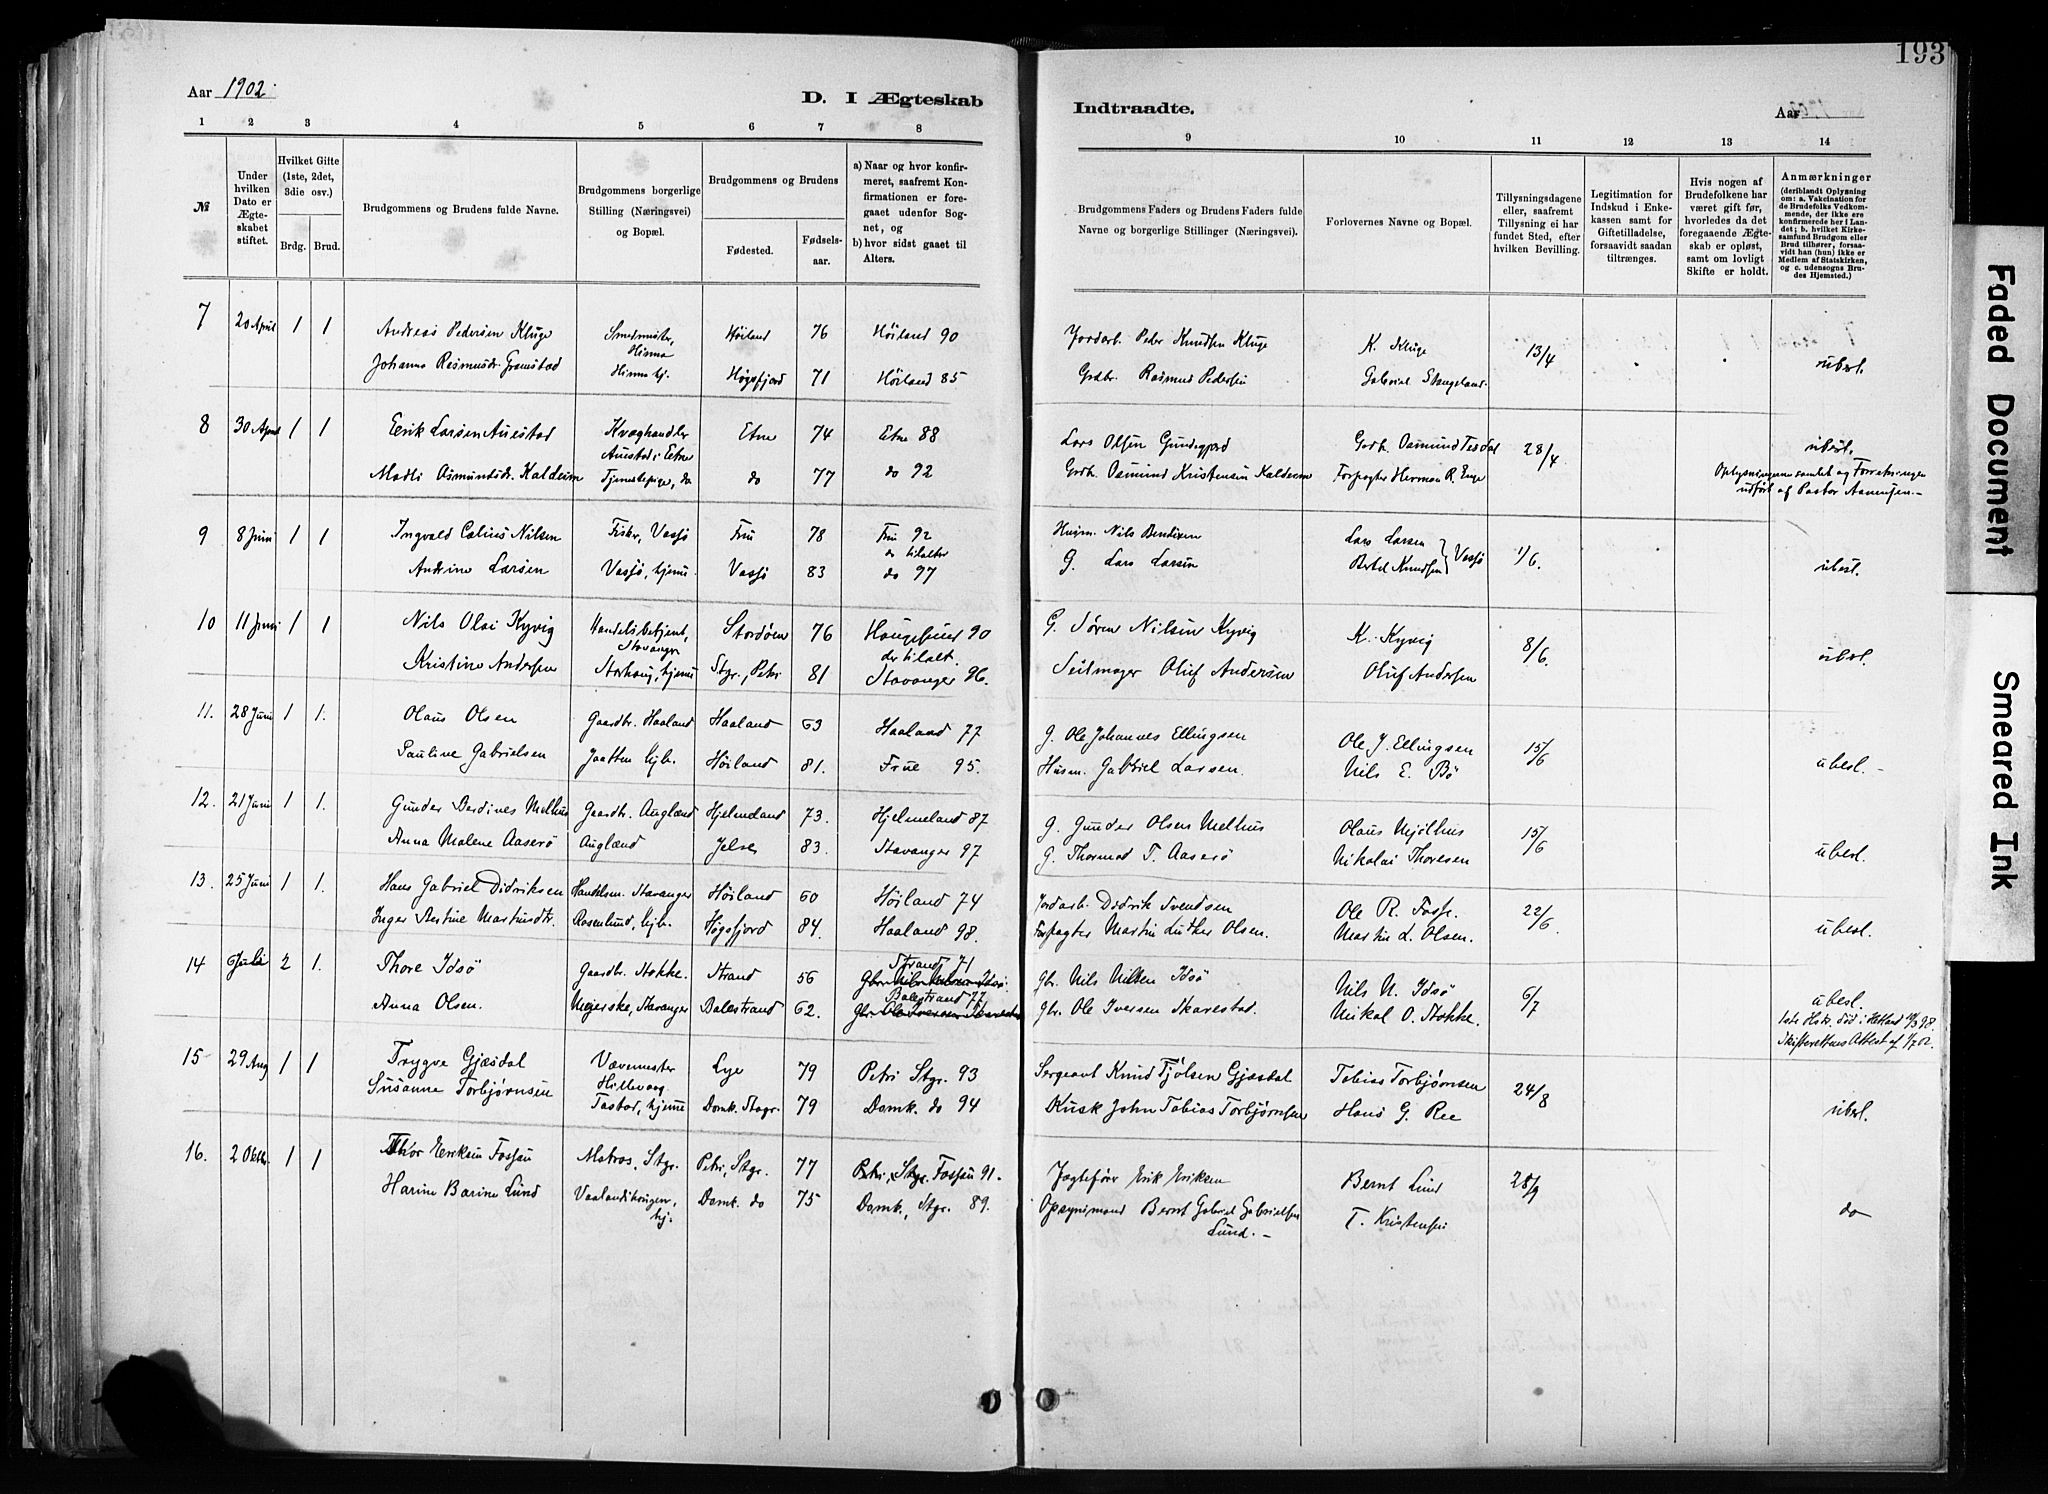 193
Aar 1902.
D. I Ægteskab Indtraadte.
Aar
1 2 3 4 5 6 7 8 9 10 11 12 13 14
№
Under hvilken Dato er Ægteskabet stiftet.
Hvilket Gifte (1ste, 2det, 3die osv.)
Brdg. Brud.
Brudgommens og Brudens fulde Navne.
Brudgommens borgerlige Stilling (Næringsvei) og Bopæl.
Brudgommens og Brudens
Fødested. Fødselsaar.
a) Naar og hvor konfirmeret, saafremt Konfirmationen er foregaaet udenfor Sognet, og
b) hvor sidst gaaet til Alters.
Brudgommens Faders og Brudens Faders fulde Navne og borgerlige Stillinger (Næringsvei).
Forlovernes Navne og Bopæl.
Tillysningsdagene eller, saafremt Tillysning ei har fundet Sted, efter hvilken Bevilling.
Legitimation for Indskud i Enkekassen samt for Giftetilladelse, forsaavidt saadan tiltrænges.
Hvis nogen af Brudefolkene har været gift før, hvorledes da det foregaaende Ægteskab er opløst, samt om lovligt Skifte er holdt.
Anmærkninger
(deriblandt Oplysning om: a. Vakcination for de Brudefolks Vedkommende, der ikke ere konfirmerede her i Landet; b. hvilket Kirkesamfund Brudgom eller Brud tilhører, forsaavidt han (hun) ikke er Medlem af Statskirken, og c. udensogns Brudes Hjemsted.)
7 20 April 1 1 Andreas Pedersen Kluge Smedmester, Hinna Høiland 76 Høiland 90 Jordarb. Peder Knudsen Kluge K. Kluge 13/4
Johanna Rasmusdr. Gramstad Hinna hj. Høgsfjord 71 Høiland 85 Grdbr. Rasmus Pedersen Gabriel Skageland ubesl.
8 30 April 1 1 Eerik Larsen Auestad Kvæghandler Auestad i Etne Etne 74 Etne 88 Lars Olsen Grdb. Osmund Tesdal 28/4 ubesl.
Madli Osmundsdr. Kaldeim Tjenestepige, do do 77 do 92 Grdb. Osmund Kristensen Kaldeim Forpagter Herman R. Enge Oplysningerne samlet og Forretningen udført af Pastor
9 8 Juni 1 1 Ingvald Celius Nilsen Fisker, Vassø Frue 78 Frue 92 Husm. Nils Bendixen Lars Larsen Vassø 1/6.
Andrine Larsen Vassø, hjemme Vassø 83 do 97 G. Lars Larsen Bertel Knudsen ubesl.
10 11 Juni 1 1 Nils Olai Kyvig Handelsbetjent, Stavanger Stordøen 76 Haugesund 90 G. Søren Nilsen Kyvig K. Kyvig 8/6.
Kristine Andersen Storhaug, hjemme Stgr., Petri 81 Stavanger 96. Seilmager Oluf Andersen Oluf Andersen ubesl.
11. 28 Juni 1 1. Olaus Olsen Gaardbr. Haaland Haaland 63 Haaland 77 G. Ole Johannes Ellingsen Ole J. Ellingsen 15/6
Pauline Gabrielsen Jaatten hjb. Høiland 81. Frue 95. Husm. Gabriel Larsen. Nils E. Bø ubesl.
12. 21 Juni 1 1. Gunder Berdines Melhus Gaardbr. Auglænd Hjelmeland 73. Hjelmeland 87 G. Gunder Olsen Melhus Olaus Mjølhus 15/6
Anna Malene Aaserø Auglænd Jelse 83. Stavanger 97 G. Thormod T. Aaserø Nikolai Thoresen ubesl.
13. 25 Juni 1 1. Hans Gabriel Didriksen Handelsm. Stavanger Høiland 60 Høiland 74 Jordarb. Didrik Svendsen Ole R. Fosse. 22/6.
Inger Bertine Martinsdtr. Rosenlund, hjb. Høgsfjord 84. Haaland 98. Forpagter Martin Luther Olsen. Martin L. Olsen. ubesl.
14 6 Juli 2 1. Thore Idsø Gaardbr. Stokke. Strand 56 Strand 71 Gbr. Nils Nilsen Idsø Gbr. Nils Nilsen Idsø Nils N. Idsø 6/7
Anna Olsen. Meierske, Stavanger Balestrand 62. Balestrand 77 Gbr. Ole Iversen Skarestad Gbr. Ole Iversen Skarestad Mikal O. Stokke. ubesl.
1ste Hstr. død i Hetland 98.
Skifterettens Attest af 1/7 02.
15 29 Aug 1 1 Trygve Gjæsdal Vævemester Hillevaag. Lye 79 Petri Stgr. 93 Sergeant Knud Tjølsen Gjæsdal Tobias Torbjørnsen 24/8
Susanne Torbjørnsen Tastad, hjemme Domk. Stvgr. 79 Domk. do 94 Kusk John Tobias Torbjørnsen Hans G. Ree ubesl.
16. 2 Oktbr. 1 1 Thor Eriksen Fossau Matros, Stgr. Petri, Stgr. 77 Petri, Stgr. Fossau 91. Jagtefører Erik Eriksen Bernt Lund 28/9
Harine Barine Lund Vaalandshaugen, hj. Domk. do 75 Domk., Stgr. 89. Opsynsmand Bernt Gabriel Gabrielsen Lund. T. Kristensen do
Faded Document
Smeared Ink